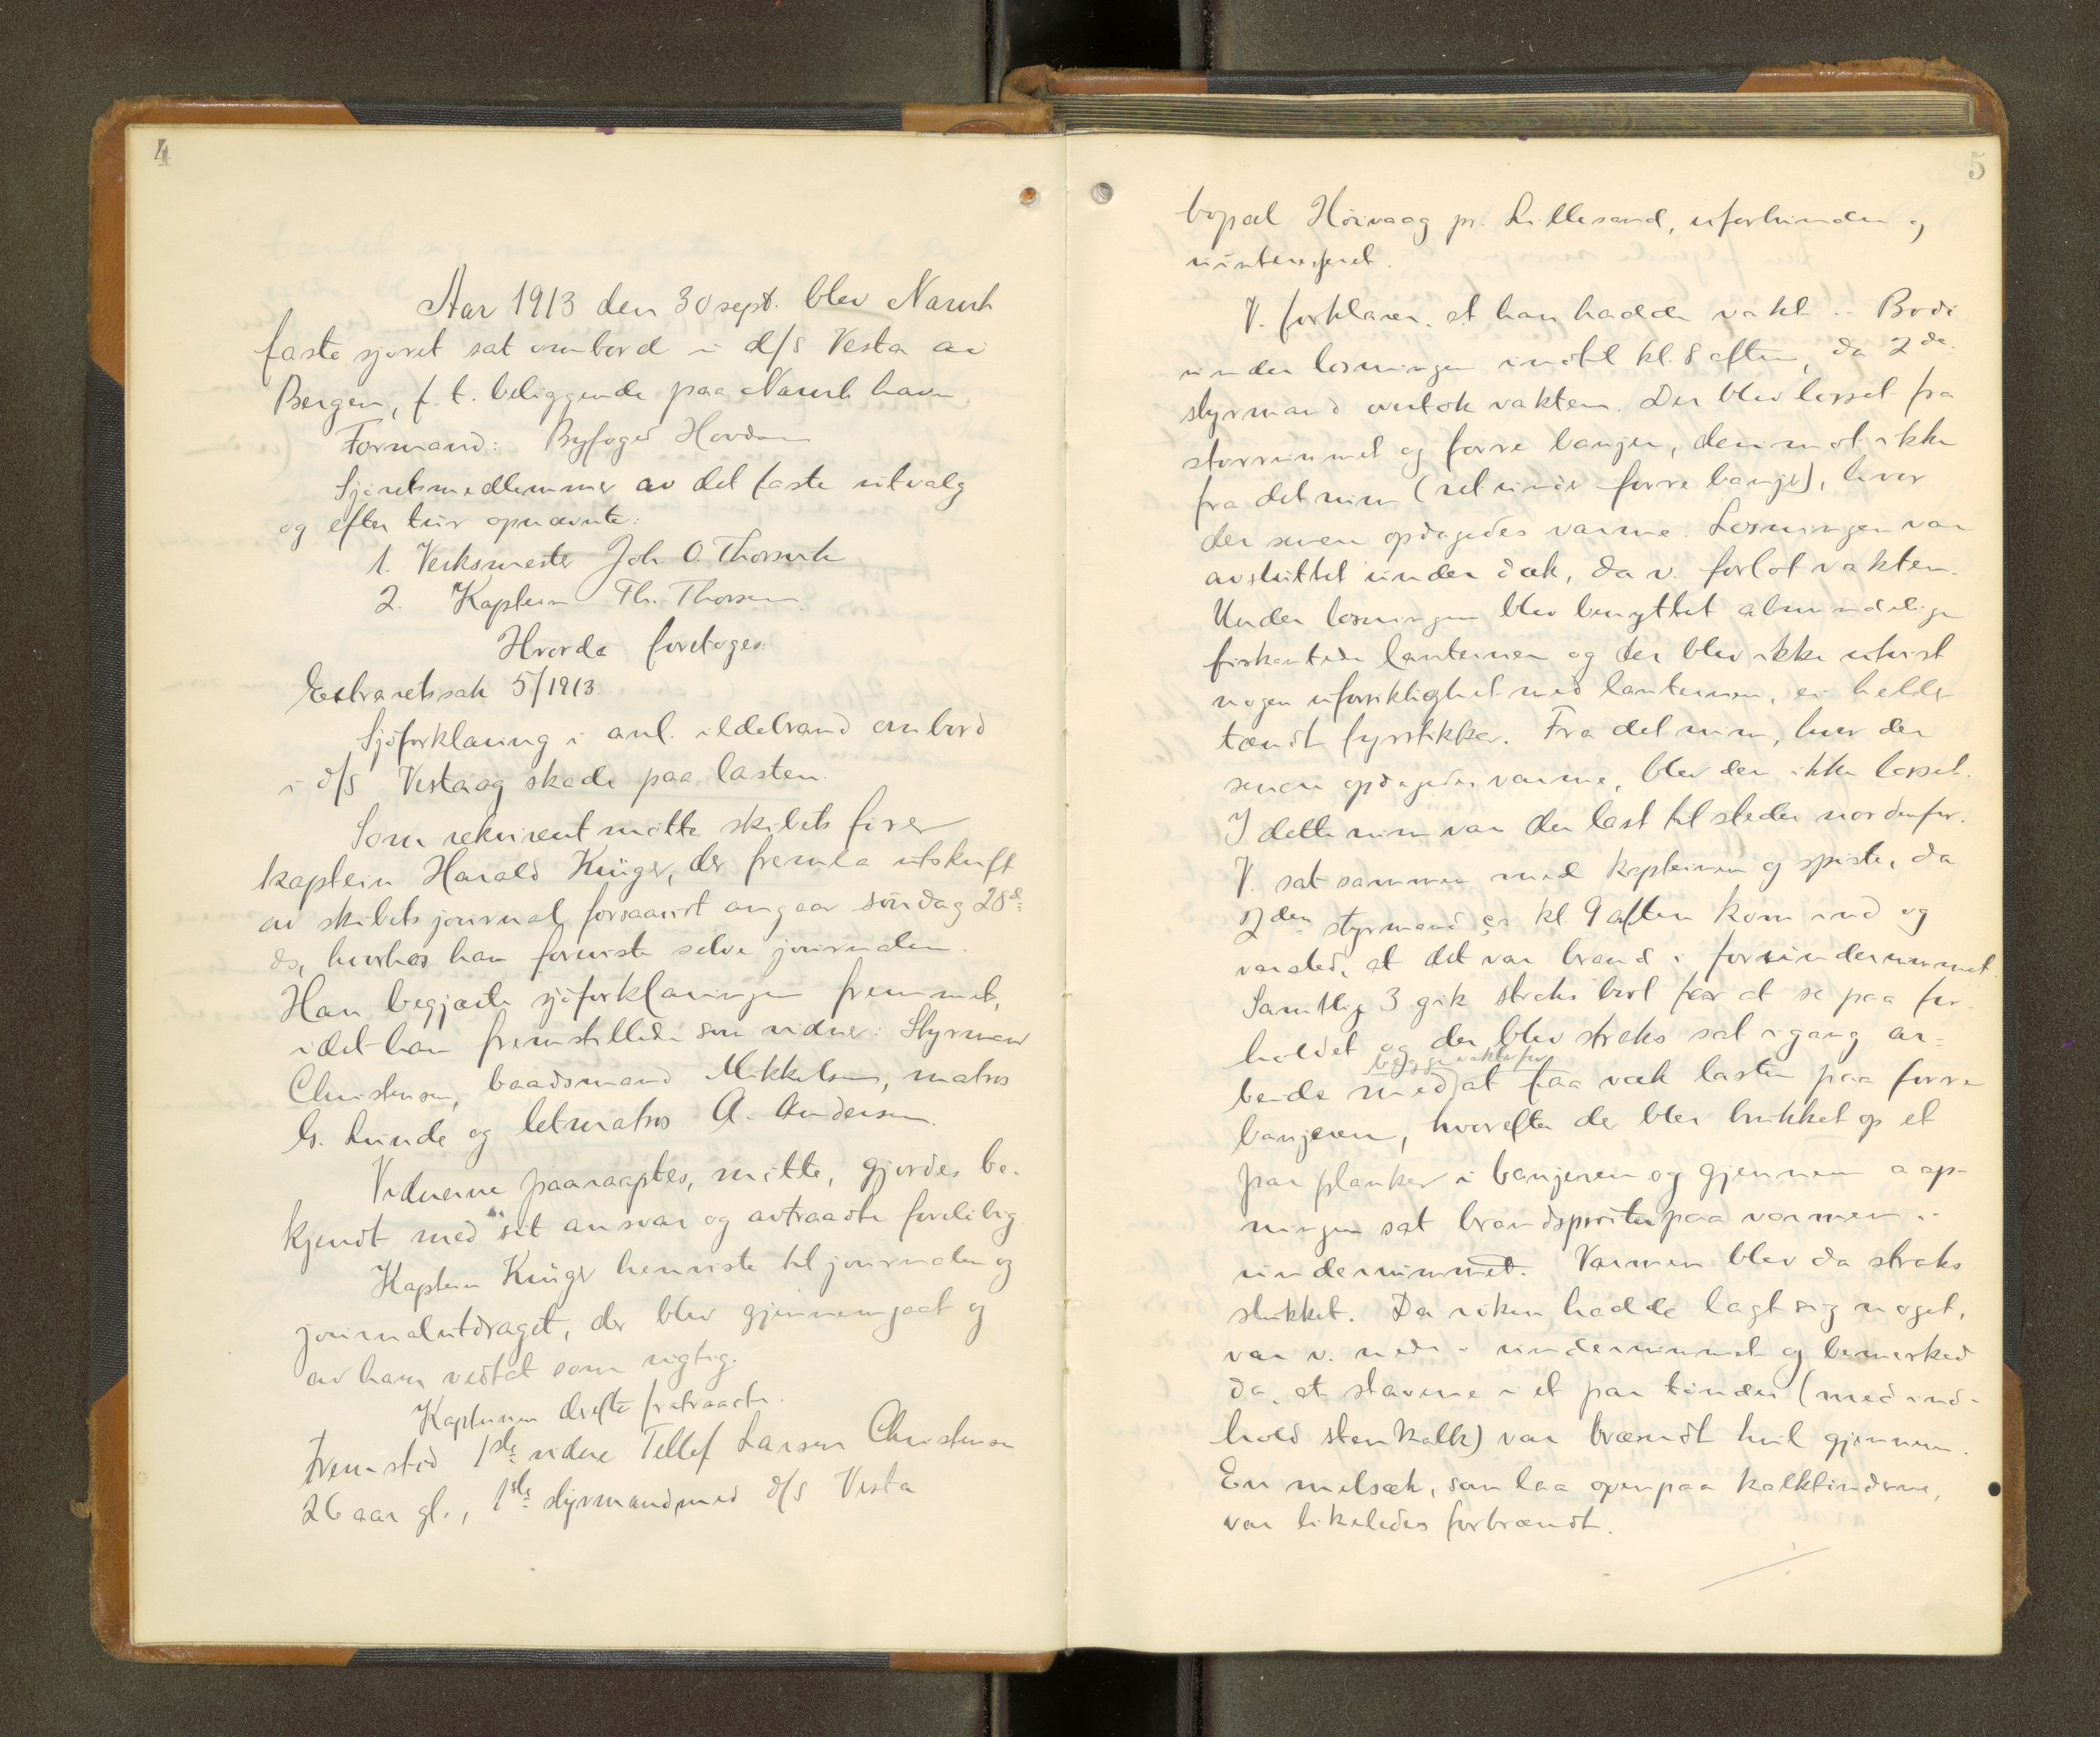 4
Aar 1913 den 30 sept. blev Narvik
faste sjøret sat ombord i d/s Vesta av
Bergen, f. t. beliggende paa Narvik havn.
Formand: Byfoged Hovdan
Sjøretsmedlemmer av det faste utvalg
og efter tur opnævnte:
1. Verksmester Joh. O. Thorsvik
2. Kaptein Th. Thorsen.
Hvorda foretoges:
Extraretssak 5/1913
Sjøforklaring i anl. ildebrand ombord
i d/s Vesta og skade paa lasten.
Som rekvirent møtte skibets fører
kaptein Harald Krüger, der fremla utskrift
av skibets journal forsaavidt angaar søndag 28de
ds, hvorhos han foreviste selve journalen.
Han begjærte sjøforklaringen fremmet,
idet han fremstillede som vidner: Styrmand
Christensen, baadsmand Mikkelsen, matros
G. Lunde og letmatros A. Andersen.
Vidnerne paaraaptes, møtte, gjordes be-
kjendt med sit ansvar og avtraadte foreløbig.
Kaptein Krüger henviste til journalen og
journalutdraget, der blev gjennemgaat og
av ham vedtat som rigtig.
Kapteinen derefter fratraadte.
Fremstod 1ste vidne Tellef Larsen Christensen
26 aar gl., 1ste styrmand med d/s Vesta
5
bopæl Høivaag pr. Lillesand, uforbunden og
uinteressert.
V. forklarer, at han hadde vakt i Bodø
under losningen indtil kl. 8 aften, da 2den
styrmand overtok vakten. Der blev losset fra
storrummet og forre banjer, derimot ikke
fra det rum (ret under forre banjer), hvor
der senere opdagedes varme. Losningen var
avsluttet under dæk, da v. forlot vakten.
Under losningen blev benyttet almindelige
firkantede lanterner og der blev ikke utvist
nogen uforsiktighet med lanternen, ei heller
tændt fyrstikker. Fra det rum, hvor der
senere opdagedes varme, blev der ikke losset.
I dette rum var der last til steder nordenfor.
V. sat sammen med kapteinen og spiste, da
2den styrmand ca. kl. 9 aften kom ind og
varsled, at det var brand i forunderrummet.
Samtlige 3 gik straks bort for at se paa for-
holdet og der blev straks sat igang ar-
begge vakter for
beide med at faa væk lasten paa forre
banjeren, hvorefter der blev brukket op et
par planker i banjeren og gjennem aap-
ningen sat brandsprøiten paa varmen i
underrummet. Varmen blev da straks
slukket. Da røken hadde lagt sig noget,
var v. nede i underrummet og bemerked
da, at stavene i et par tønder (med ind-
hold stenkalk) var brændt hul gjennem.
En melsæk, som laa ovenpaa kalktønderne,
var likeledes forbrændt.